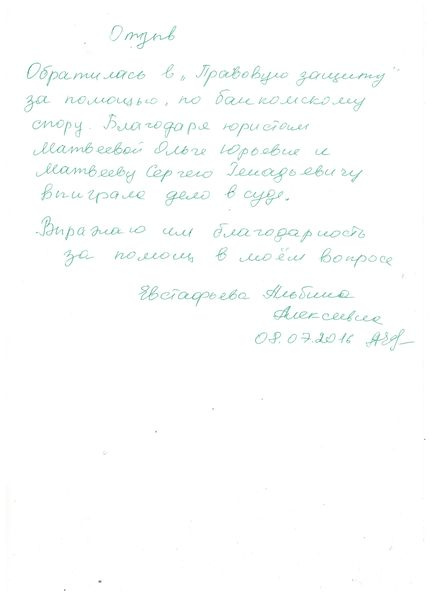 Отзыв
Обратилась в „Правовую защиту"
за помощью, по банкомскому
спору. Благодаря юристам
Матвеевой Ольге Юрьевне и
Матвееву Сергею Генадьевичу
выиграла дело в суде.
Выражаю им благодарность
за помощ в моём вопросе
Евстафьева Альбина
Алексеевна
08.07.2016